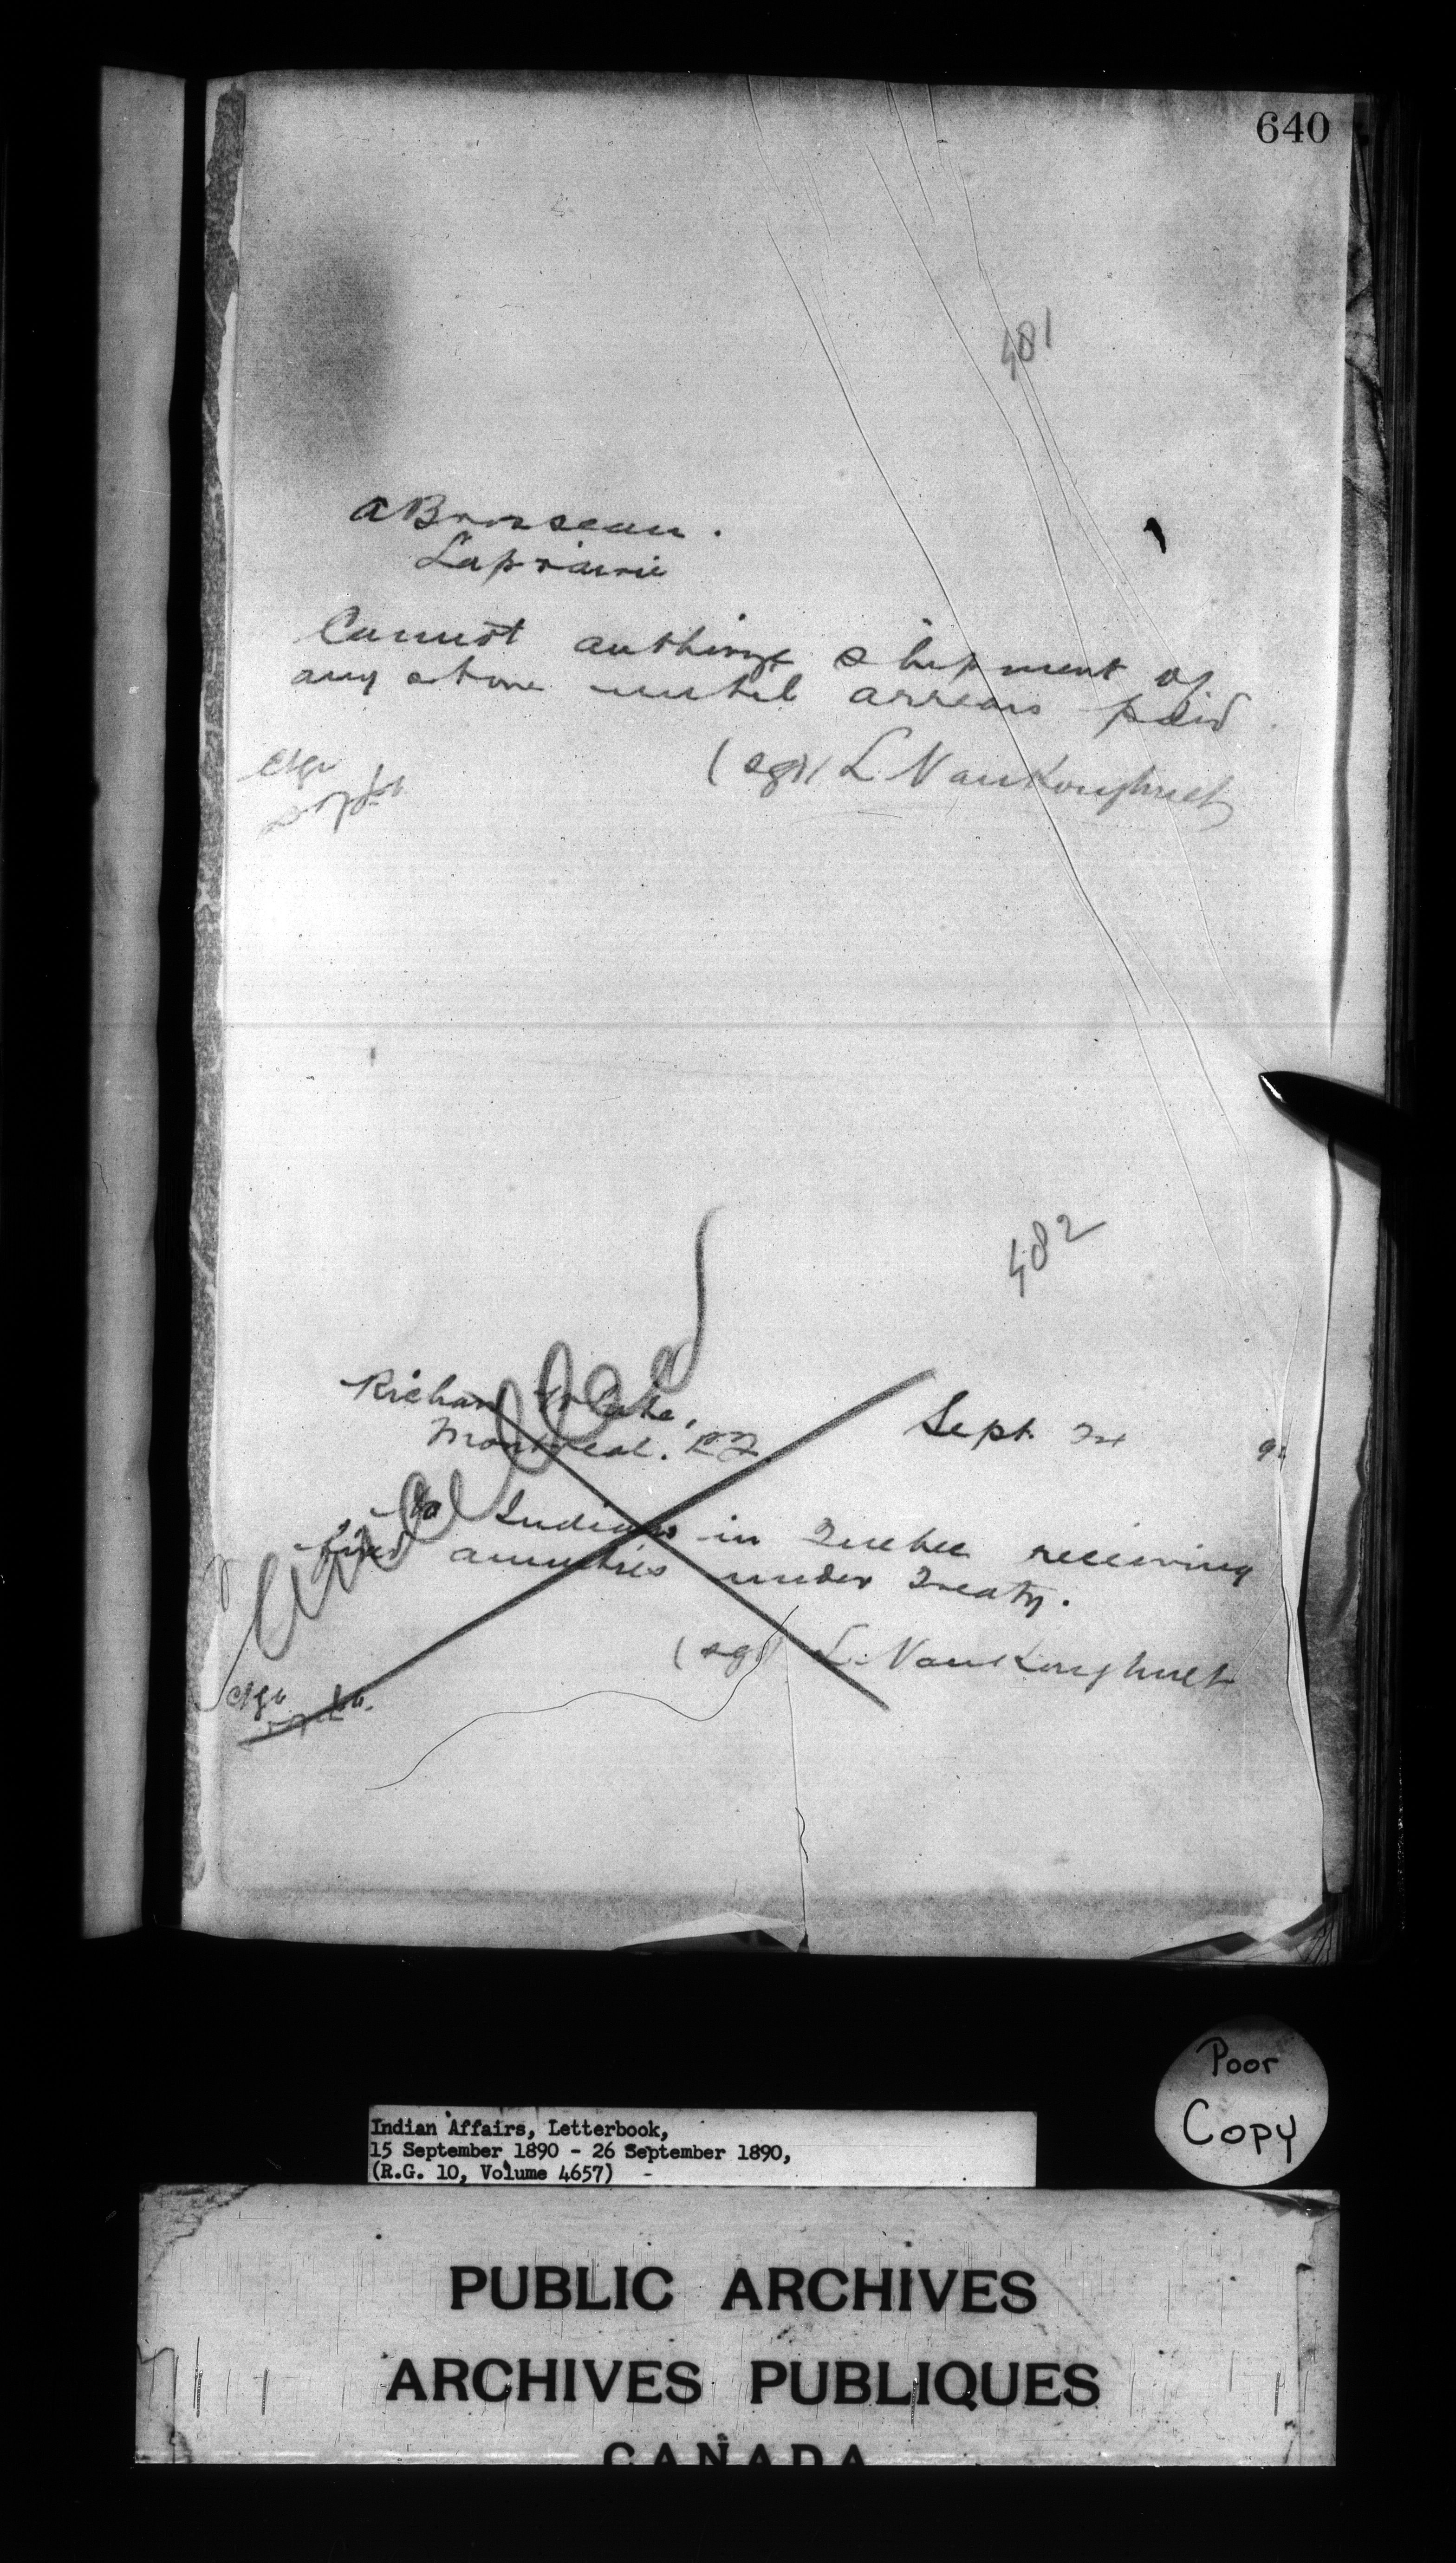 640
481
A Brosseau.
Laprairie
Cannot authorize shipment of
any stone until arrears paid
(sgd) L. VanKoughnet
Chge
Dept
482
Cancelled
Richard White,
Montreal. P.Q.
Sept. 24 90
No Indians in Quebec receiving
fixed annuities under Treaty.
(sgd) L. VanKoughnet
Chge
Poor
Copy
Indian Affairs, Letterbook,
15 September 1890 - 26 September 1890,
(R.G. 10, Volume 4657) -
PUBLIC ARCHIVES
ARCHIVES PUBLIQUES
CANADA